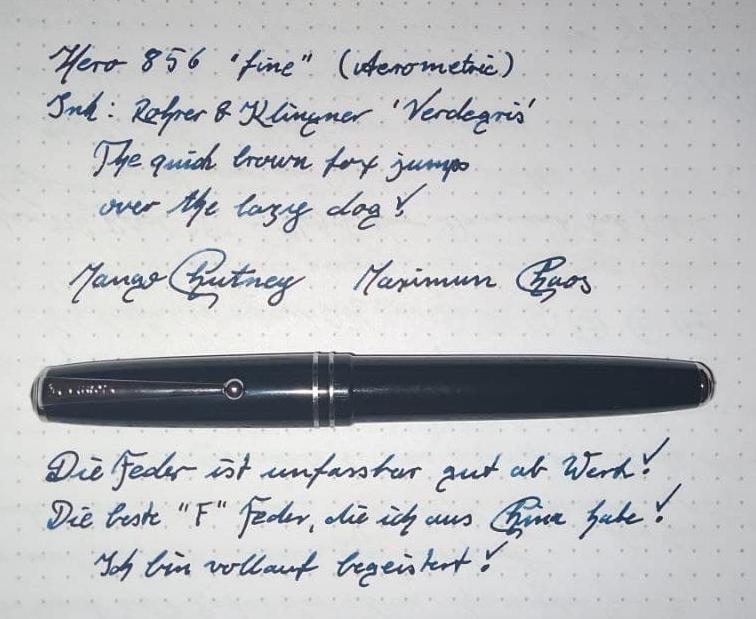 Hero 856 "fine" (Aerometric)
Ink: Rohrer & Klingner 'Verdegris'
The quick brown fox jumps
over the lazy dog!
Mango Chutney Maximum Chaos
Die Feder ist unfassbar gut ab Werk!
Die beste "F" Feder, die ich aus China habe!
Ich bin vollauf begeistert!